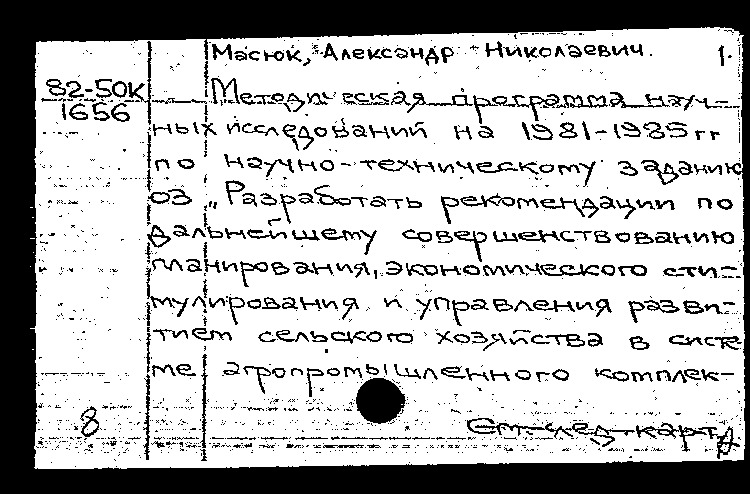 Масюк, Александр Николаевич. 1.
82-50К Методическая программа науч-
1656
ных исследований на 1981-1985 гг
по научно-техническому заданию
03 „Разработать рекомендации по
дальнейшему совершенствованию
планирования, экономического сти-
мулирования и управления разви-
тием сельского хозяйства в систе
ме агропромышленного комплек-
8 См след карт